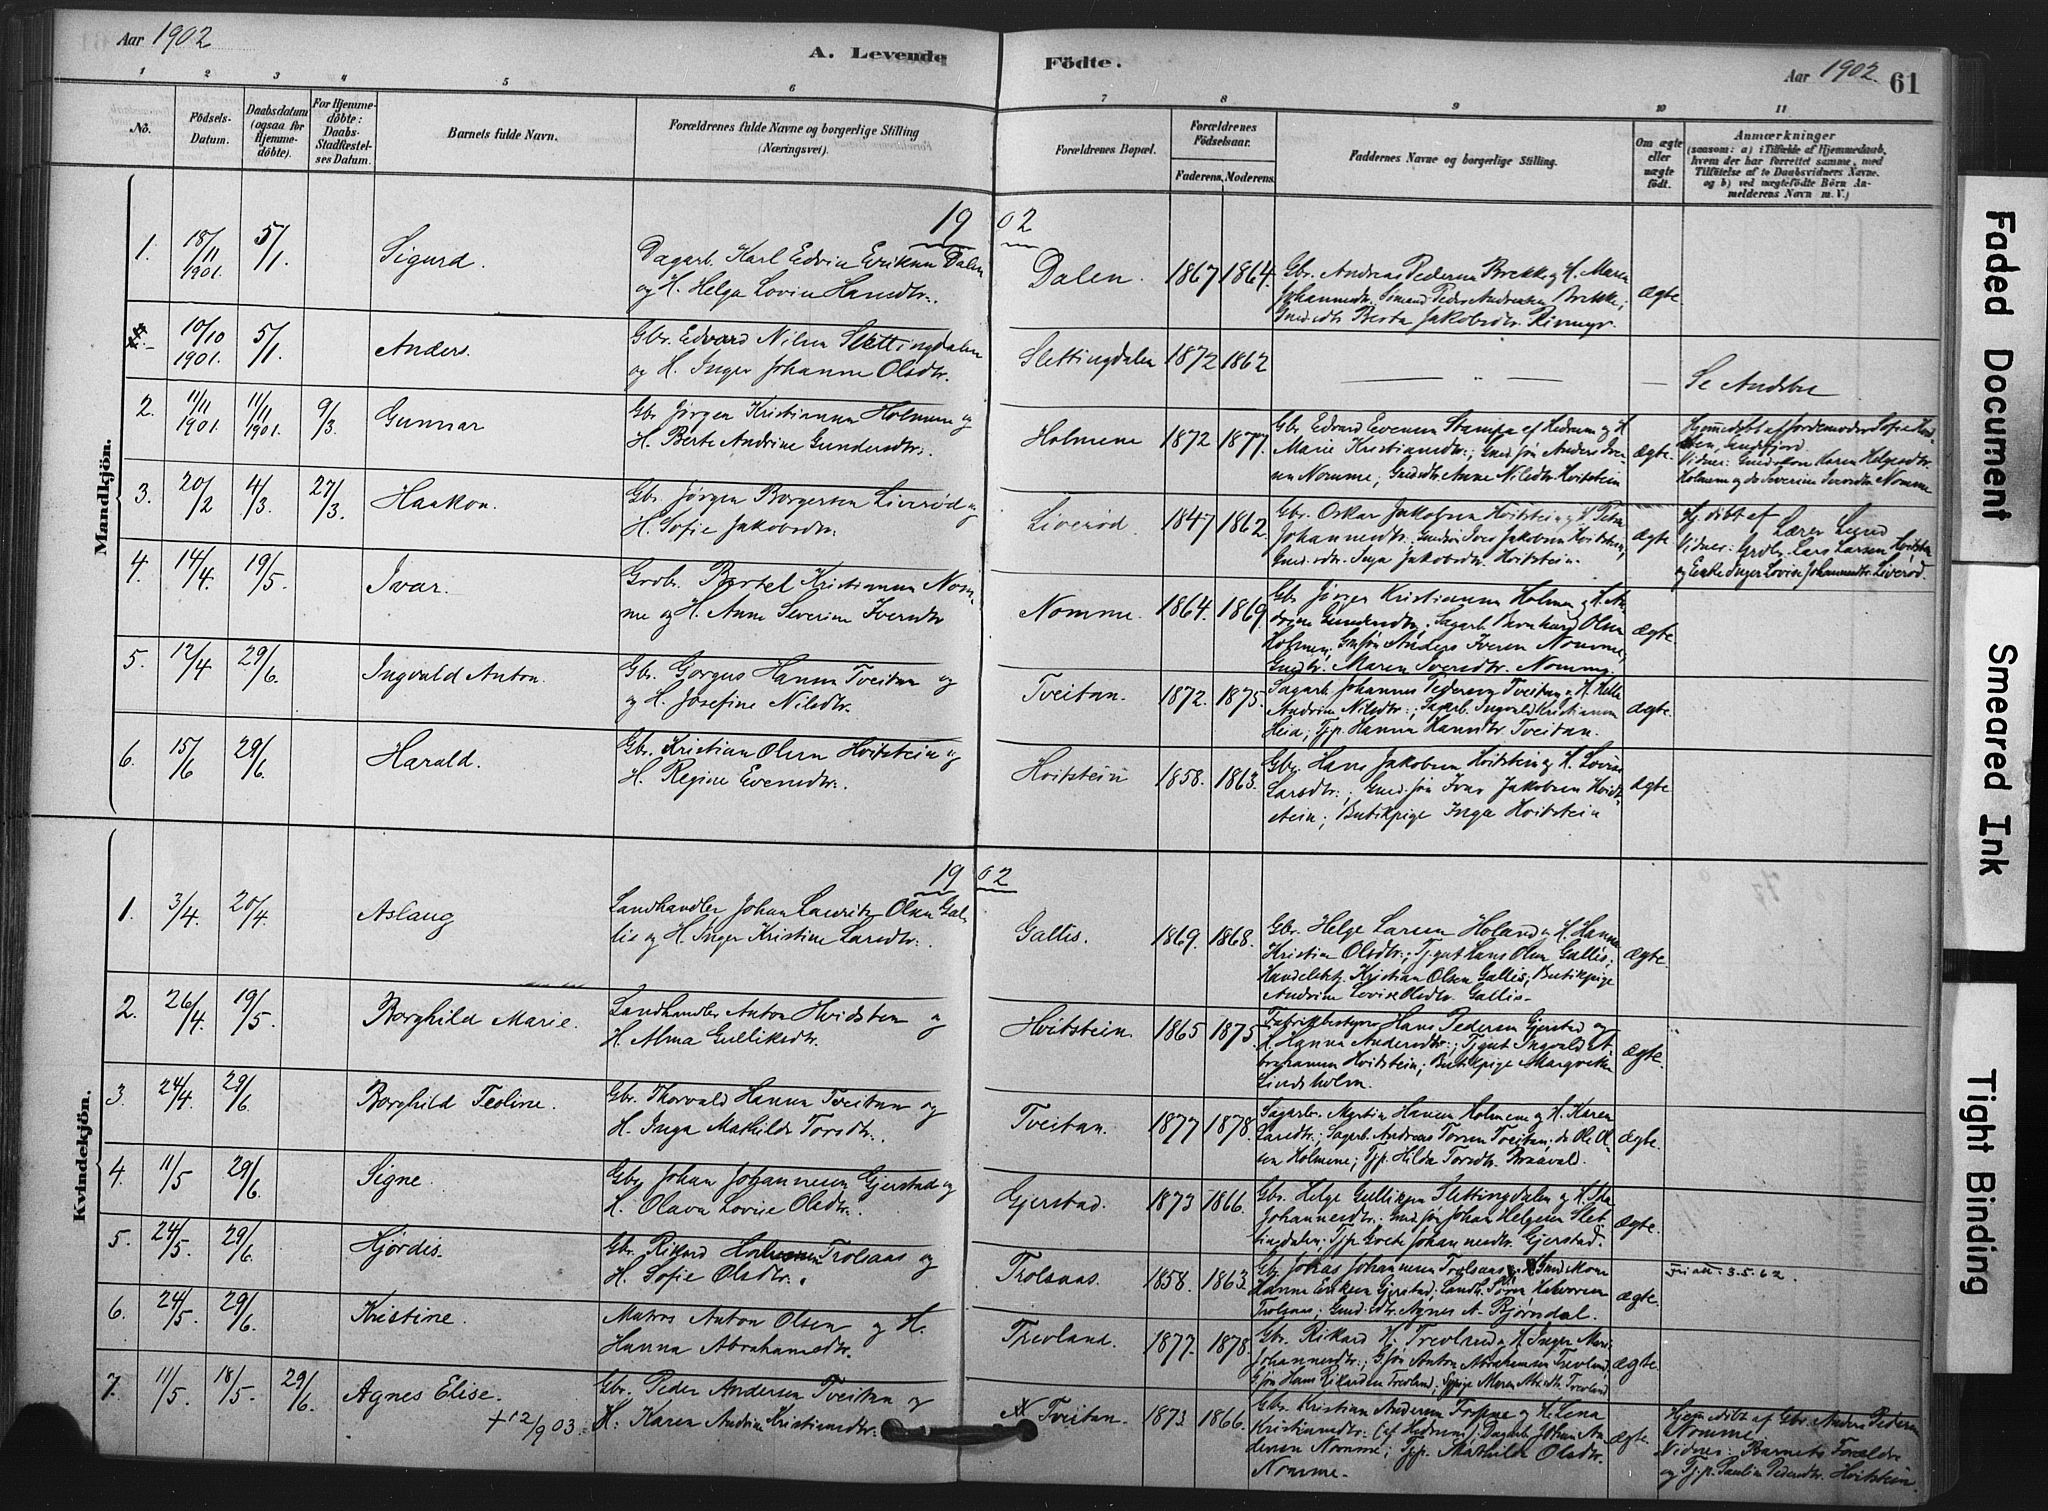 Aar 1902
A. Levende Födte.
Aar 1902.
61
1 2 3 4 5 6 7 8 9 10 11
No.
Födsels-Datum.
Daabsdatum (ogsaa for Hjemme-döbte).
For Hjemme-döbte: Daabs-Stadfæstel-ses Datum.
Barnets fulde Navn.
Forældrenes fulde Navne og borgerlige Stilling
(Næringsvei).
Forældrenes Bopæl.
Forældrenes Födselsaar.
Faderens. Moderens.
Faddernes Navne og borgerlige Stilling.
Om ægte eller uægte födt.
Anmærkninger
(saasom: a) i Tilfælde af Hjemmedaab,
hvem der har forrettet samme, med
Tilföielse af to Daabsvidners Navne.
og b) ved uægtefödte Börn An-
melderens Navn m. V.)
Mandkjön.
1902
1. 18/11 1901. 5/1. Sigurd.
Dagarb. Karl Edvin Eriksen Dalen
og H. Helga Lovise Hansdtr.
Dalen. 1867 1864.
Gbr. Andreas Pedersen Brekke og H. Maren
Johannesdtr.; Simand Peder Andreasen Brekke;
Gaardsdtr. Berta Jakobsdtr.
Ægte.
10/10 1901. 5/1. Anders.
Gbr. Edvard Nilsen Slettingdalen
og H. Inger Johanne Olsdtr.
Slettingdalen 1872 1862
Se Andebu
2. 11/11 1901. 11/11 1901. 9/3. Gunnar
Gbr. Jørgen Kristiansen Holmene og
H. Berte Andrine Gundersdtr.
Holmene 1872 1877.
Gbr. Edvard Evensen Stampa af Hedrum og H.
Marie Kristiansdtr.; Gmds.søn Anders Iver-
sen Nomme; Gmdsdtr. Anne Nilsdtr. Hvitstein
Ægte.
Hjemmedøbt af Jordemoder Sofie
Holmene og Severine Iversdtr. Nomme
3. 20/2 4/3. 27/3. Haakon.
Gbr. Jørgen Borgersen Liverød og
H. Sofie Jakobsdtr.
Liverød 1847 1862.
Gbr. Oskar Jakobsen Hvitstein og H. Petra
Johannesdtr.; Gmdssøn Iver Jakobsen Hvitstein;
Gmds.dtr. Inga Jakobsdtr. Hvitstein.
Ægte
Hj. døbt af Lærer
Vidner: Grdbr. Lars Larsen Hvitstein
og Enke Inger Lovise Johannesdtr. Liverød.
4. 14/4. 19/5. Ivar.
Grdbr. Bertel Kristiansen Nom-
me og H. Anne Severine Iversdtr
Nomme. 1864. 1869.
Gbr. Jørgen Kristiansen Holmen og H. An-
drine Gundersdtr.; Sagarb. Bernhard Olsen
Holmen; Gmsøn Anders Iversen Nomme;
Gmdsdtr. Maren Iversdtr. Nomme.
Ægte.
5. 12/4 29/6. Ingvald Anton.
Gbr. Gorgus Hansen Tveitan og
og H. Josefine Nilsdtr.
Tveitan. 1872. 1875.
Sagarb. Johannes Pedersen Tveitan og H. Helle
Andrine Nilsdtr.; Sagarb. Ingvald Kristiansen
Heia; Tjp. Hanna Hansdtr. Tveitan.
Ægte.
6. 15/6 29/6. Harald.
Gbr. Kristian Olsen Hvitstein og
H. Regine Evensdtr.
Hvitstein 1858. 1863.
Gbr. Hans Jakobsen Hvitstein og H. Lovise
Larsdtr.; Gmds.søn Ivar Jakobsen Hvit-
stein; Butikpige Inga Hvitstein
Ægte
Kvindekjön.
1902
1. 3/4. 20/4. Aslaug
Landhandler Johan Lauritz Olsen Gal-
lis og H. Inger Kristine Larsdtr.
Gallis. 1869. 1868.
Gbr. Helge Larsen Holand og H. Hanna
Kristine Olsdtr.; Tj.gut Hans Olsen Gallis;
Handelsbetj. Kristian Olsen Gallis; Butikpige
Andrine Lovise Olsdtr. Gallis.
Ægte.
2. 26/4 19/5. Borghild Marie.
Landhandler Anton Hvidsten og
H. Alma Gulliksdtr.
Hvitstein. 1865 1875.
Fabrikbestyrer Hans Pedersen Gjerstad og
H. Hanna Andersdtr.; Tjgut Ingvald A-
brahamsen Hvitstein; Butikpige Margrethe
Lindsholm.
Ægte.
3. 24/4. 29/6. Borghild Teoline.
Gbr. Thorvald Hansen Tveitan og
H. Inga Mathilde Torsdtr.
Tveitan. 1877 1878.
Sagarb. Martin Hansen Holmene og H. Karen
Larsdtr.; Sagarb. Andreas Torsen Tveitan; do Ole Ol-
sen Holmene; Tjp. Hilda Torsdtr. Braavold.
Ægte.
4. 11/5 29/6. Signe.
Gbr. Johan Johannesen Gjerstad og
H. Olava Lovise Olsdtr.
Gjerstad. 1873 1866.
Gbr. Helge Gulliksen Slettingdalen og H.
Johannesdtr.; Gmd.søn Johan Helgesen Slet-
tingdalen; Tjp. Grete Johannesdtr. Gjerstad.
Ægte.
5. 24/5. 29/6. Hjördis.
Gbr. Rikard Trolsaas og
H. Sofie Olsdtr.
Trolsaas. 1858. 1863.
Gbr. Johan Johannesen Trolsaas og Gmd.kone
Hanna Eriksen Gjerstad; Landh. Søren Halvorsen
Trolsaas; Gmd.dtr. Agnes A. Bjørndal.
Ægte.
Fri att. 3.5.62.
6. 24/5. 29/6. Kristine.
Matros Anton Olsen og H.
Hanna Abrahamsdtr.
Trevland. 1877. 1878.
Gbr. Rikard H. Trevland og H. Inger Mari
Johannesdtr.; G.søn Anton Abrahamsen Trevland;
G.søn Hans Rikardsen Trevland; Sypige Maren Abrahdtr. Trevland
Ægte.
7. 11/5. 18/5. 29/6. Agnes Elise.
+ 12/9 03.
Gbr. Peder Andersen Tveitan og
H. Karen Andrine Kristiansdtr.
Tveitan. 1873. 1866.
Gbr. Kristian Andersen og H. Lena
Kristiansdtr. (af Hedrum); Dagarb. Johan An-
dersen Nomme; Tjp. Mathilde Olsdtr.
Nomme.
Ægte.
Hjemmedøbt af Gbr. Anders Pedersen
Nomme.
Vidner: Barnets Forældre
og Tj.p. Pauline Pedersdtr. Hvitstein.
Faded Document
Smeared Ink
Tight Binding